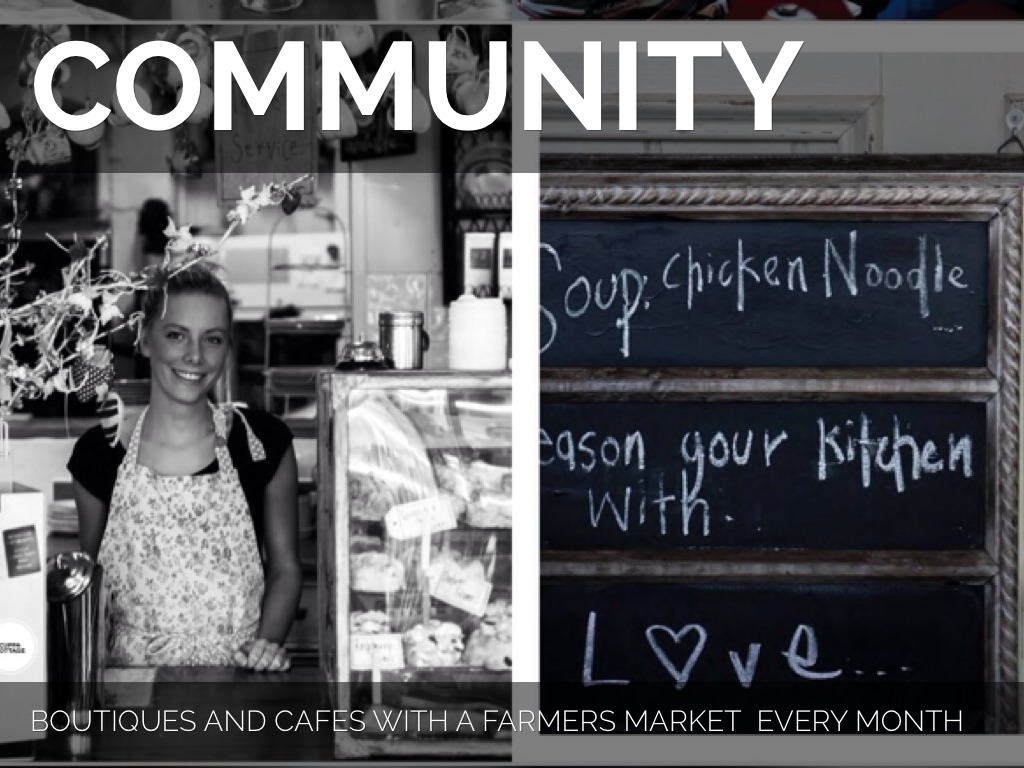 COMMUNITY
Service
Soup: Chicken Noodle
eason your kitchen
with.
Love...
BOUTIQUES AND CAFES WITH A FARMERS MARKET EVERY MONTH